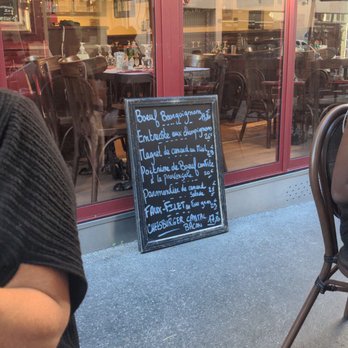 Bœuf Bourguignon
Entrecôte aux champignons
Magret de canard au miel
Poitrine de Bœuf confite
à la provençale
Parmentier de canard
salade
FAUX-FILET au Foie gras
CHEESBURGER CANTAL
BACON